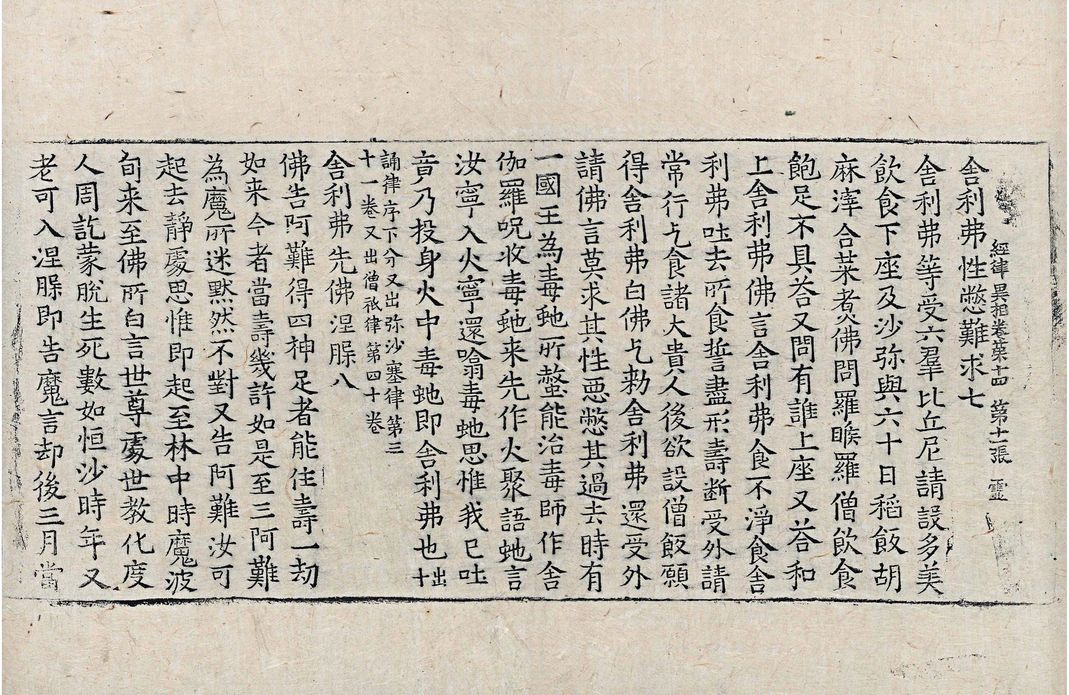 經律異相卷第十四 第十二張 靈
舍利弗性憋難求七
舍利弗等受六羣比丘尼請設多美
飲食下座及沙弥與六十日稻飯胡
麻滓合菜煮佛問羅睺羅僧飲食
飽足不具荅又問有誰上座又荅和
上舍利弗佛言舍利弗食不淨食舍
利弗吐去所食誓盡形壽断受外請
常行乞食諸大貴人後欲設僧飯願
得舍利弗白佛乞勑舍利弗還受外
請佛言莫求其性惡憋其過去時有
一國王為毒虵所螫能治毒師作舍
伽羅呪収毒虵来先作火聚語虵言
汝寧入火寧還噏毒虵思惟我已吐
音乃投身火中毒虵即舍利弗也出十
誦律序下分又出弥沙塞律第三
十一卷又出僧祇律第四十卷
舍利弗先佛涅腺八
佛告阿難得四神足者能住壽一劫
如来今者當壽幾許如是至三阿難
為魔所迷黙然不對又告阿難汝可
起去靜處思惟即起至林中時魔波
旬来至佛所白言世尊處世教化度
人周訖蒙脫生死數如恒沙時年又
老可入涅腺即告魔言却後三月當